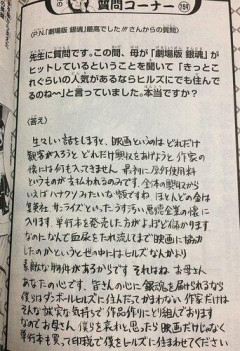 質問コーナー
(P.N.「劇場版 銀魂」最高でした!!さんからの質問)
先生に質問です。この間、母が「劇場版 銀魂」が
ヒットしているということを聞いて「きっとこ
れぐらいの人気があるならヒルズにでも住んで
るのね〜」と言っていました。本当ですか?
(答え)
生々しい話をしますと、映画というのはどれだけ
観客が入ろうとどれだけ興収をあげようと作家の
懐には何も入ってきません。最初に原作使用料
というものが支払われるのみです。全体の興収から
いえばハナクソみたいな額ですね ほとんどの金は
集英社、サンライズといったうす汚い悪徳企業の懐に
入ります。単行本を発売した方がよほど儲かります
なのになんで血尿をたれ流してまで映画に協力
したのかというと世の中にはヒルズなんかより
素敵な物件があるからです それはね お母さん
あなたの心です。皆さんの心に銀魂を届けられるなら
僕らはダンボールヒルズに住んだってかまわない 作家だけは
そんな誠実な気持ちで作品作りにとり組んでおります
なのでお母さん、僕らを哀れと思ったら映画だけじゃなく
単行本を買って印税で僕をヒルズに住まわせてください